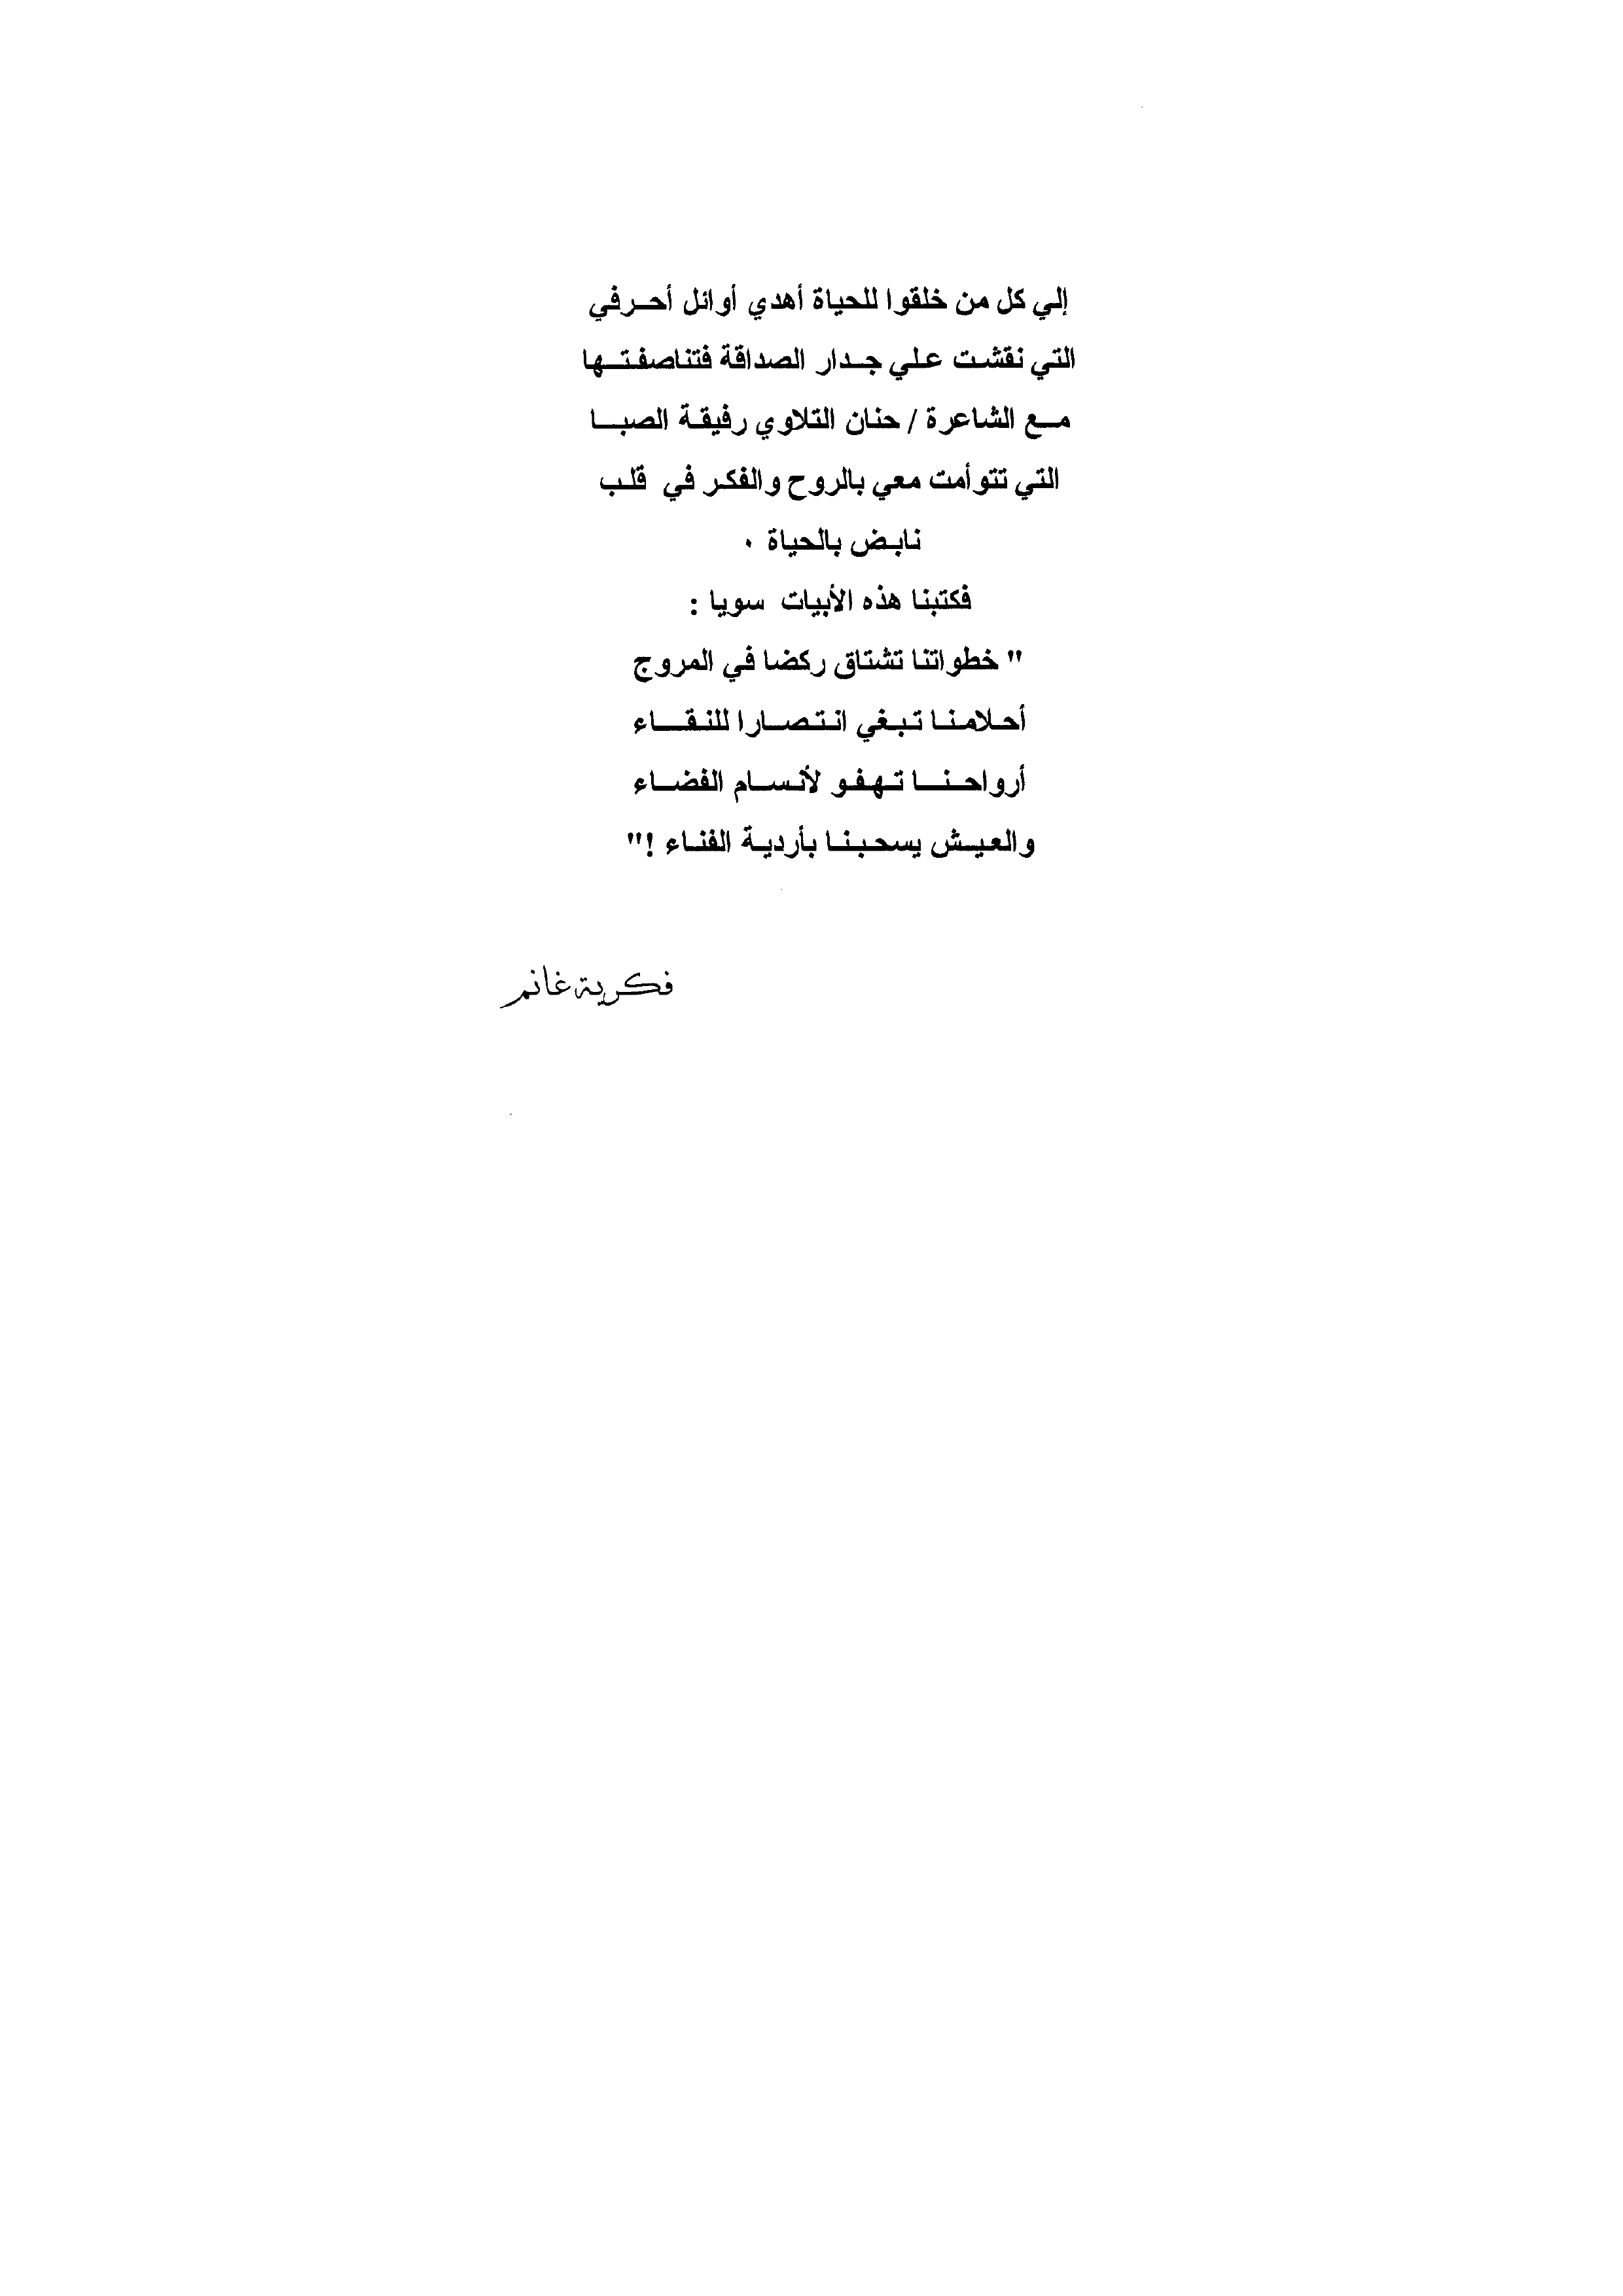 إلي كل من خلقوا للحياة أهدي أوائل أحرفي
التي نقشت علي جدار الصداقة فتناصفتها
مع الشاعرة / حنان التلاوي رفيقة الصبا
التي تتوأمت معي بالروح والفكر في قلب
نابض بالحياة ٠
فكتبنا هذه الأبيات سويا :
" خطواتنا تشتاق ركضا في المروج
أحلامنا تبغي انتصارا للنقاء
أرواحنا تهفو لأنسام الفضاء
والعيش يسحبنا بأردية الفناء !"
فكرية غانم